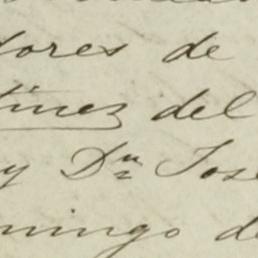 dores de
tinez del
y Dn José
mingo de